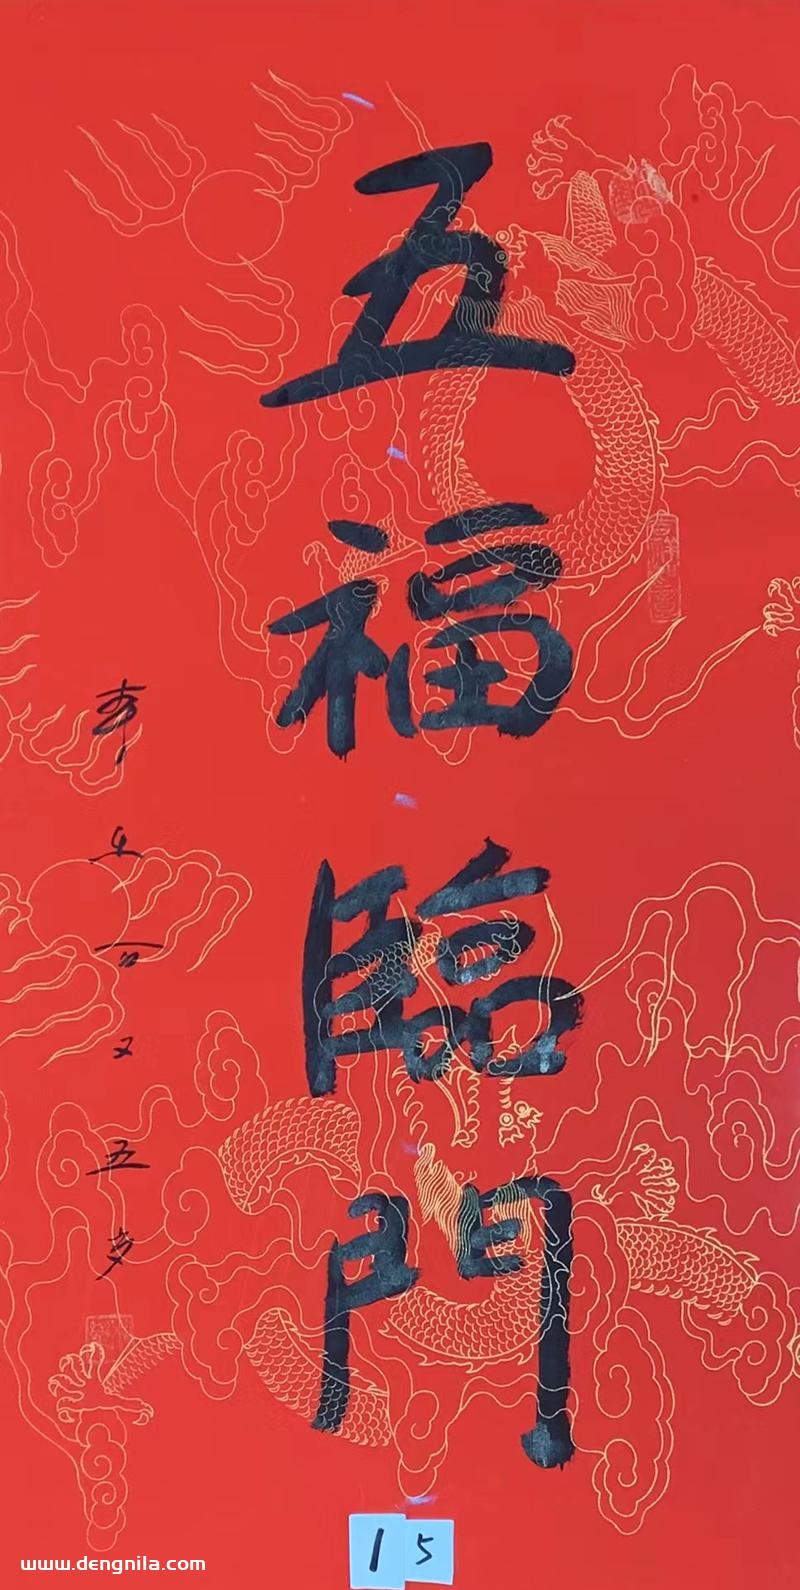 五福臨門
百又五岁
15
www.dengnila.com